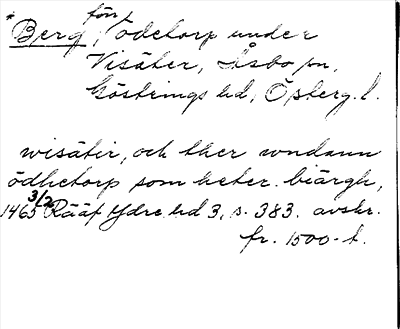 * Berg, förr ödetorp under
Visäter, Åsbo sn,
Göstrings hd, Österg. l.
wisätir, och ther wndann
ödhetorp som heter biärgh,
1465 3/2 Rääf Ydre hd 3, s. 383. avskr.
fr. 1500-t.